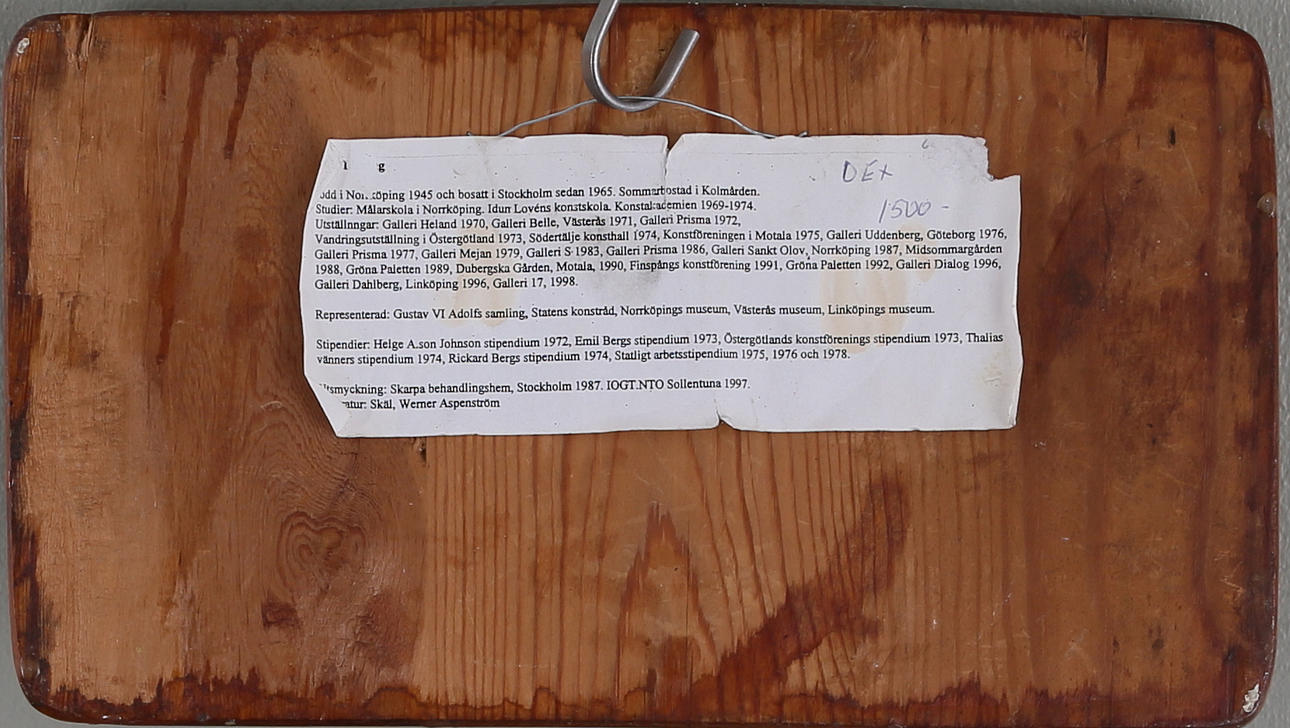 g
DEX
1500-
i Norrköping 1945 och bosatt i Stockholm sedan 1965. Sommarbostad i Kolmården.
Studier: Målarskola i Norrköping. Idun Lovéns konstskola. Konstakademien 1969-1974.
Utställningar: Galleri Heland 1970, Galleri Belle, Västerås 1971, Galleri Prisma 1972,
Vandringsutställning i Östergötland 1973, Södertälje konsthall 1974, Konstföreningen i Motala 1975, Galleri Uddenberg, Göteborg 1976,
Galleri Prisma 1977, Galleri Mejan 1979, Galleri S 1983, Galleri Prisma 1986, Galleri Sankt Olov, Norrköping 1987, Midsommargården
1988, Gröna Paletten 1989, Dubergska Gården, Motala, 1990, Finspångs konstförening 1991, Gröna Paletten 1992, Galleri Dialog 1996,
Galleri Dahlberg, Linköping 1996, Galleri 17, 1998.
Representerad: Gustav VI Adolfs samling, Statens konstråd, Norrköpings museum, Västerås museum, Linköpings museum.
Stipendier: Helge A.son Johnson stipendium 1972, Emil Bergs stipendium 1973, Östergötlands konstförenings stipendium 1973, Thalias
vänners stipendium 1974, Rickard Bergs stipendium 1974, Statligt arbetsstipendium 1975, 1976 och 1978.
Utsmyckning: Skarpa behandlingshem, Stockholm 1987. IOGT.NTO Sollentuna 1997.
Skäl, Werner Aspenström